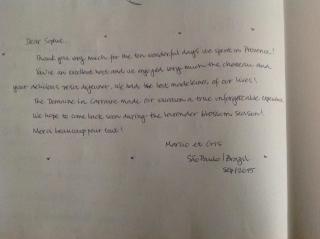 Dear Sophie,
Thank you very much for the ten wonderful days we spent in Provence!
You're an excellent host and we enjoyed very much the chateau and
your delicious petit dejeuner. We had the best madeleines of our lives!
The Domaine in Carraire made our vacation a true unforgettable experience.
We hope to come back soon during the lavender blossom season!
Merci beaucoup pour tout!
Marcio et Cris
São Paulo / Brazil
Sep/2015